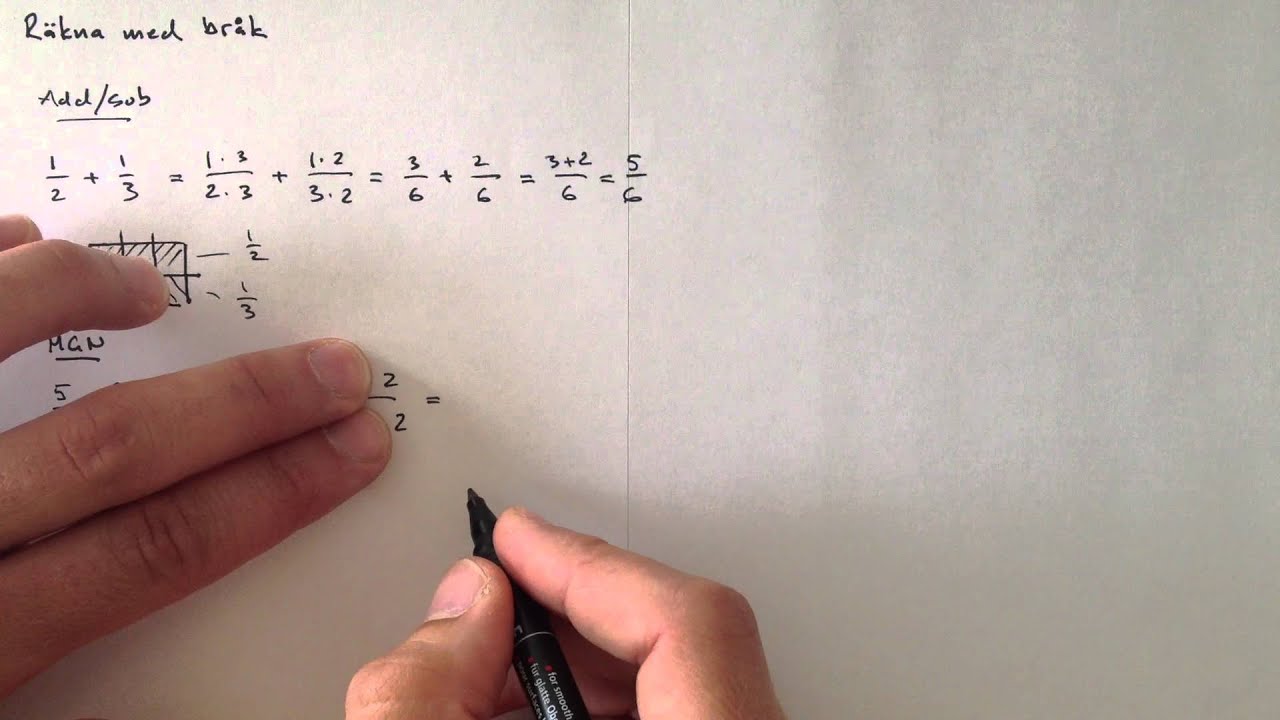 Räkna med bråk
Add/sub
1/2 + 1/3 = 1·3/2·3 + 1·2/3·2 = 3/6 + 2/6 = 3+2/6 = 5/6
— 1/2
~ 1/3
MGN
5 2/2 =
for smooth
für glatte Ob